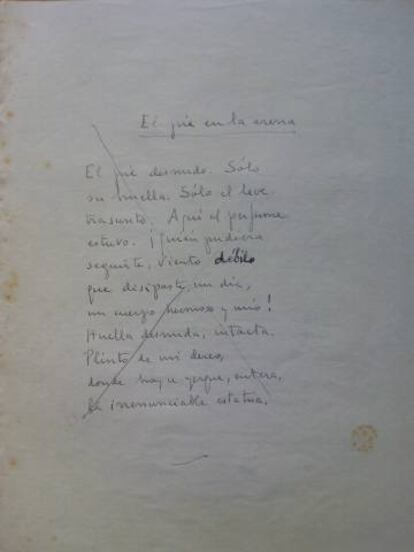 El pie en la arena
El pie desnudo. Sólo
su huella. Sólo el leve
trasunto. Aquí el perfume
estuvo. ¡Quién pudiera
seguirte, viento débil
que disipaste, un día,
un cuerpo hermoso y mío!
Huella desnuda, intacta.
Plinto de mi deseo,
donde hoy se yergue, entera,
la irrenunciable estatua.